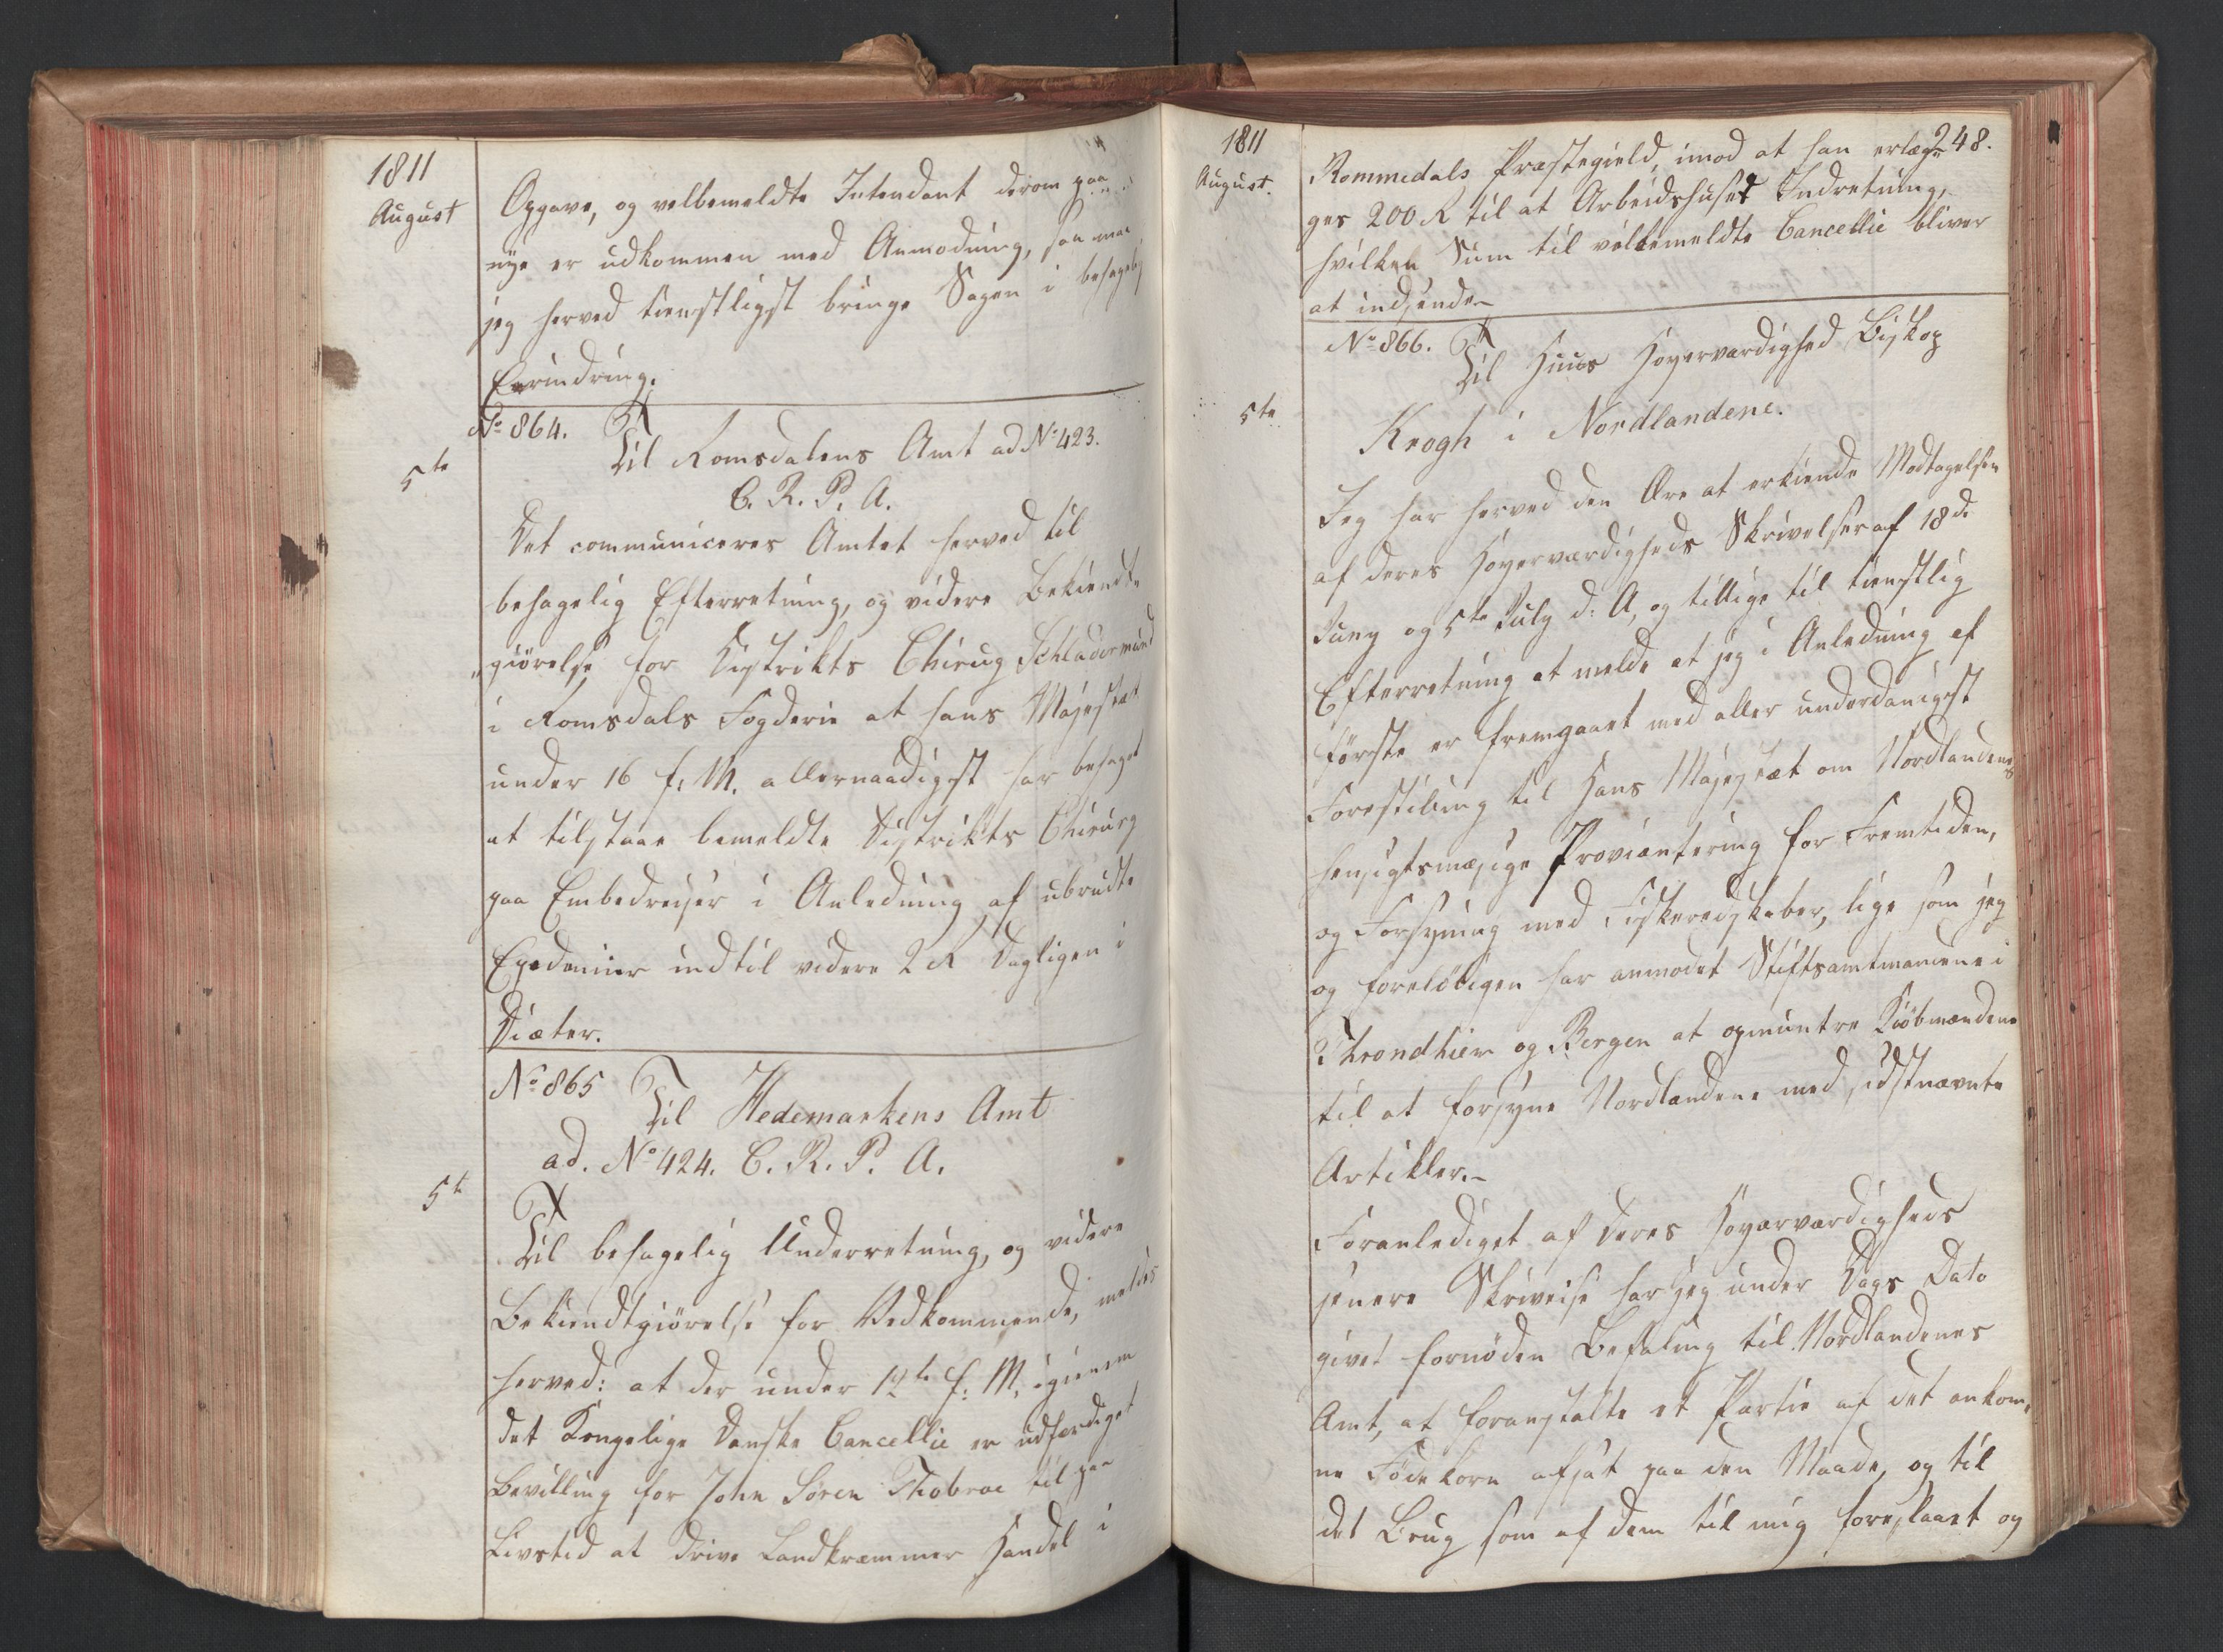 1811
August
Opgave, og velbemeldte Intendant derom paa
nye er udkommen med Anmodning, saa maa
jeg herved tienstligst bringe Sagen i behagelig
Erindring.
No 864.
5te
Til Romsdalens Amt ad No 423.
C. R. P. A.
Det communiceres Amtet herved til
behagelig Efterretning, og videre Bekiendt-
giörelse for Distrikts Chirug Schladermund
i Romsdals Fogderie at hans Majestæt
under 16 f. M. allernaadigst har behaget
at tilstaae bemeldte Distrikts Chirurg
paa Embedreiser i Anledning af ubrudte
Epedemier indtil videre 2 R Dagligen i
Diæter.
No 865
Til Hedemarkens Amt
ad. No 424. C. R. P. A.
5te
Til behagelig Underretning, og videre
Bekiendtgiörelse for Vedkommende, meldes
herved: at der under 12te f. M. igienem
det Kongelige Danske Cancellie er udfærdiget
Bevilling for John Sören Thobroe til paa
Livstid at drive Landkræmmer Handel i
1811
August.
248.
Rommedals Præstegield, imod at han erlæg-
ger 200 R til at Arbeidshuset Indretning,
hvilken Sum til velbemeldte Cancellie bliver
at indsende.
No 866.
Til Hans Höyærværdighed Biskop
5te
Krogh i Nordlandene.
Jeg har herved den Ære at erkiende Modtagelsen
af deres Höyærværdigheds Skrivelser af 18de
Juny og 5te July d: A, og tillige til tienstlig
Efterretning at melde at jeg i Anledning af
förste er fremgaaet med aller underdanigst
Forestilling til Hans Majestæt om Nordlandenes
hensigtsmæsige Proviantering for Fremtiden,
og Forsyning med Fiskeredskaber, lige som jeg
og forelöbigen har anmodet Stiftsamtmændene i
Throndhiem og Bergen at opmuntre Kiöbmændene
til at forsyne Nordlandene med sidstnævnte
Artikler.
Foranlediget af deres Höyærværdigheds
senere Skrivelse har jeg under Dags Dato
givet fornöden Befaling til Nordlandenes
Amt, at foranstalte et Partie af det ankom-
ne Födekorn afsat paa den Maade, og til
det Brug som af dem til mig foreslaaet og